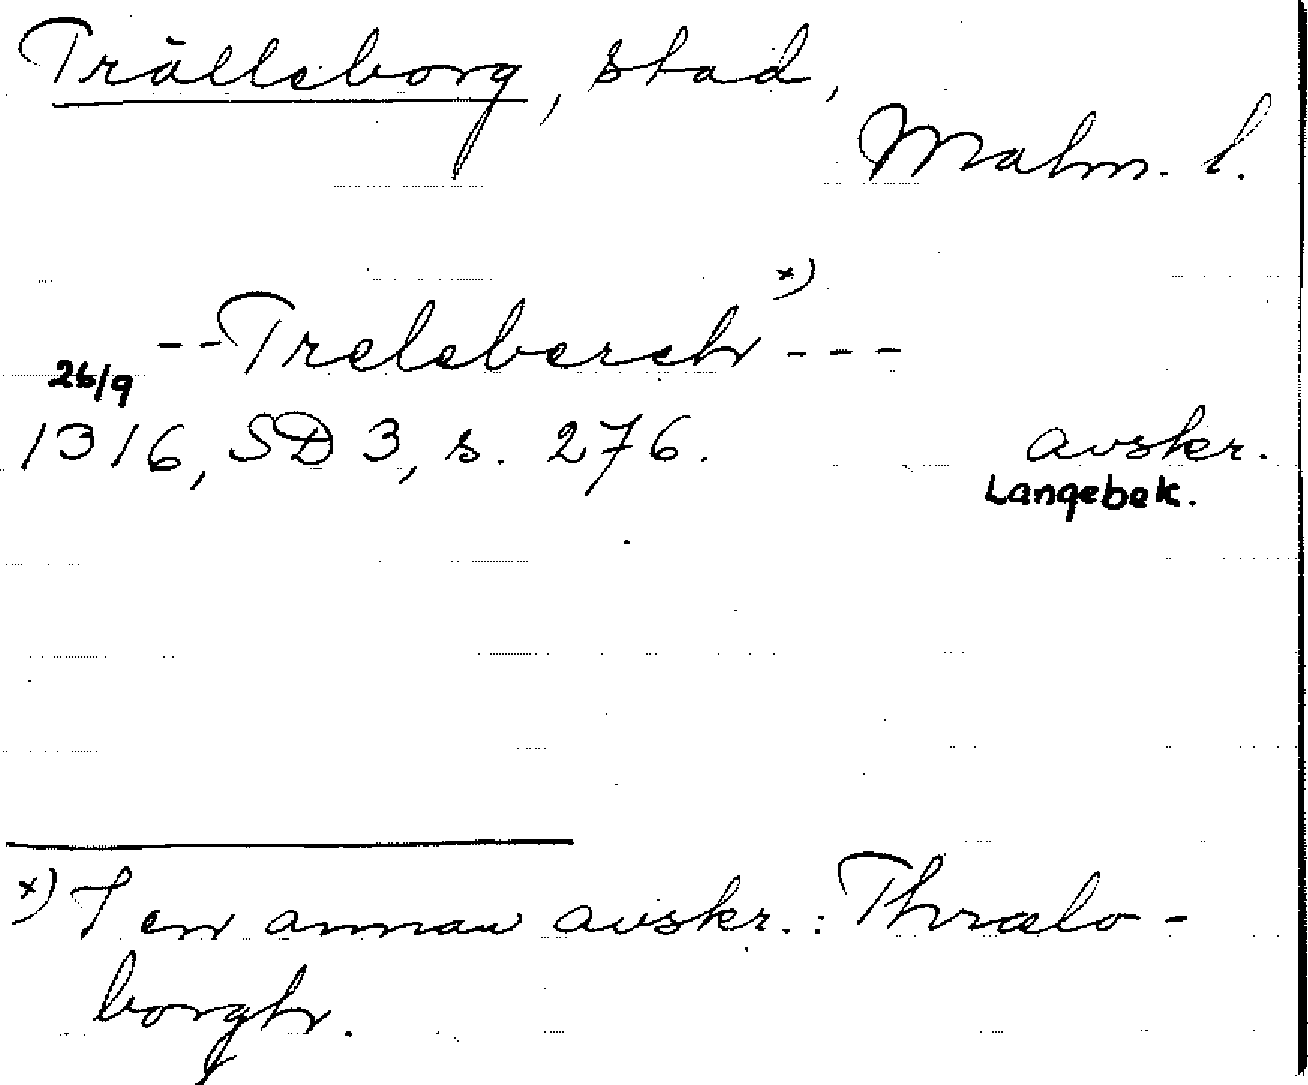 Trälleborg, stad,
Malm. l.
--Treleberch x) ---
26/9
1316, SD 3, s. 276. avskr.
Langebek.
x) I en annan avskr.: Thrælo-
borgh.